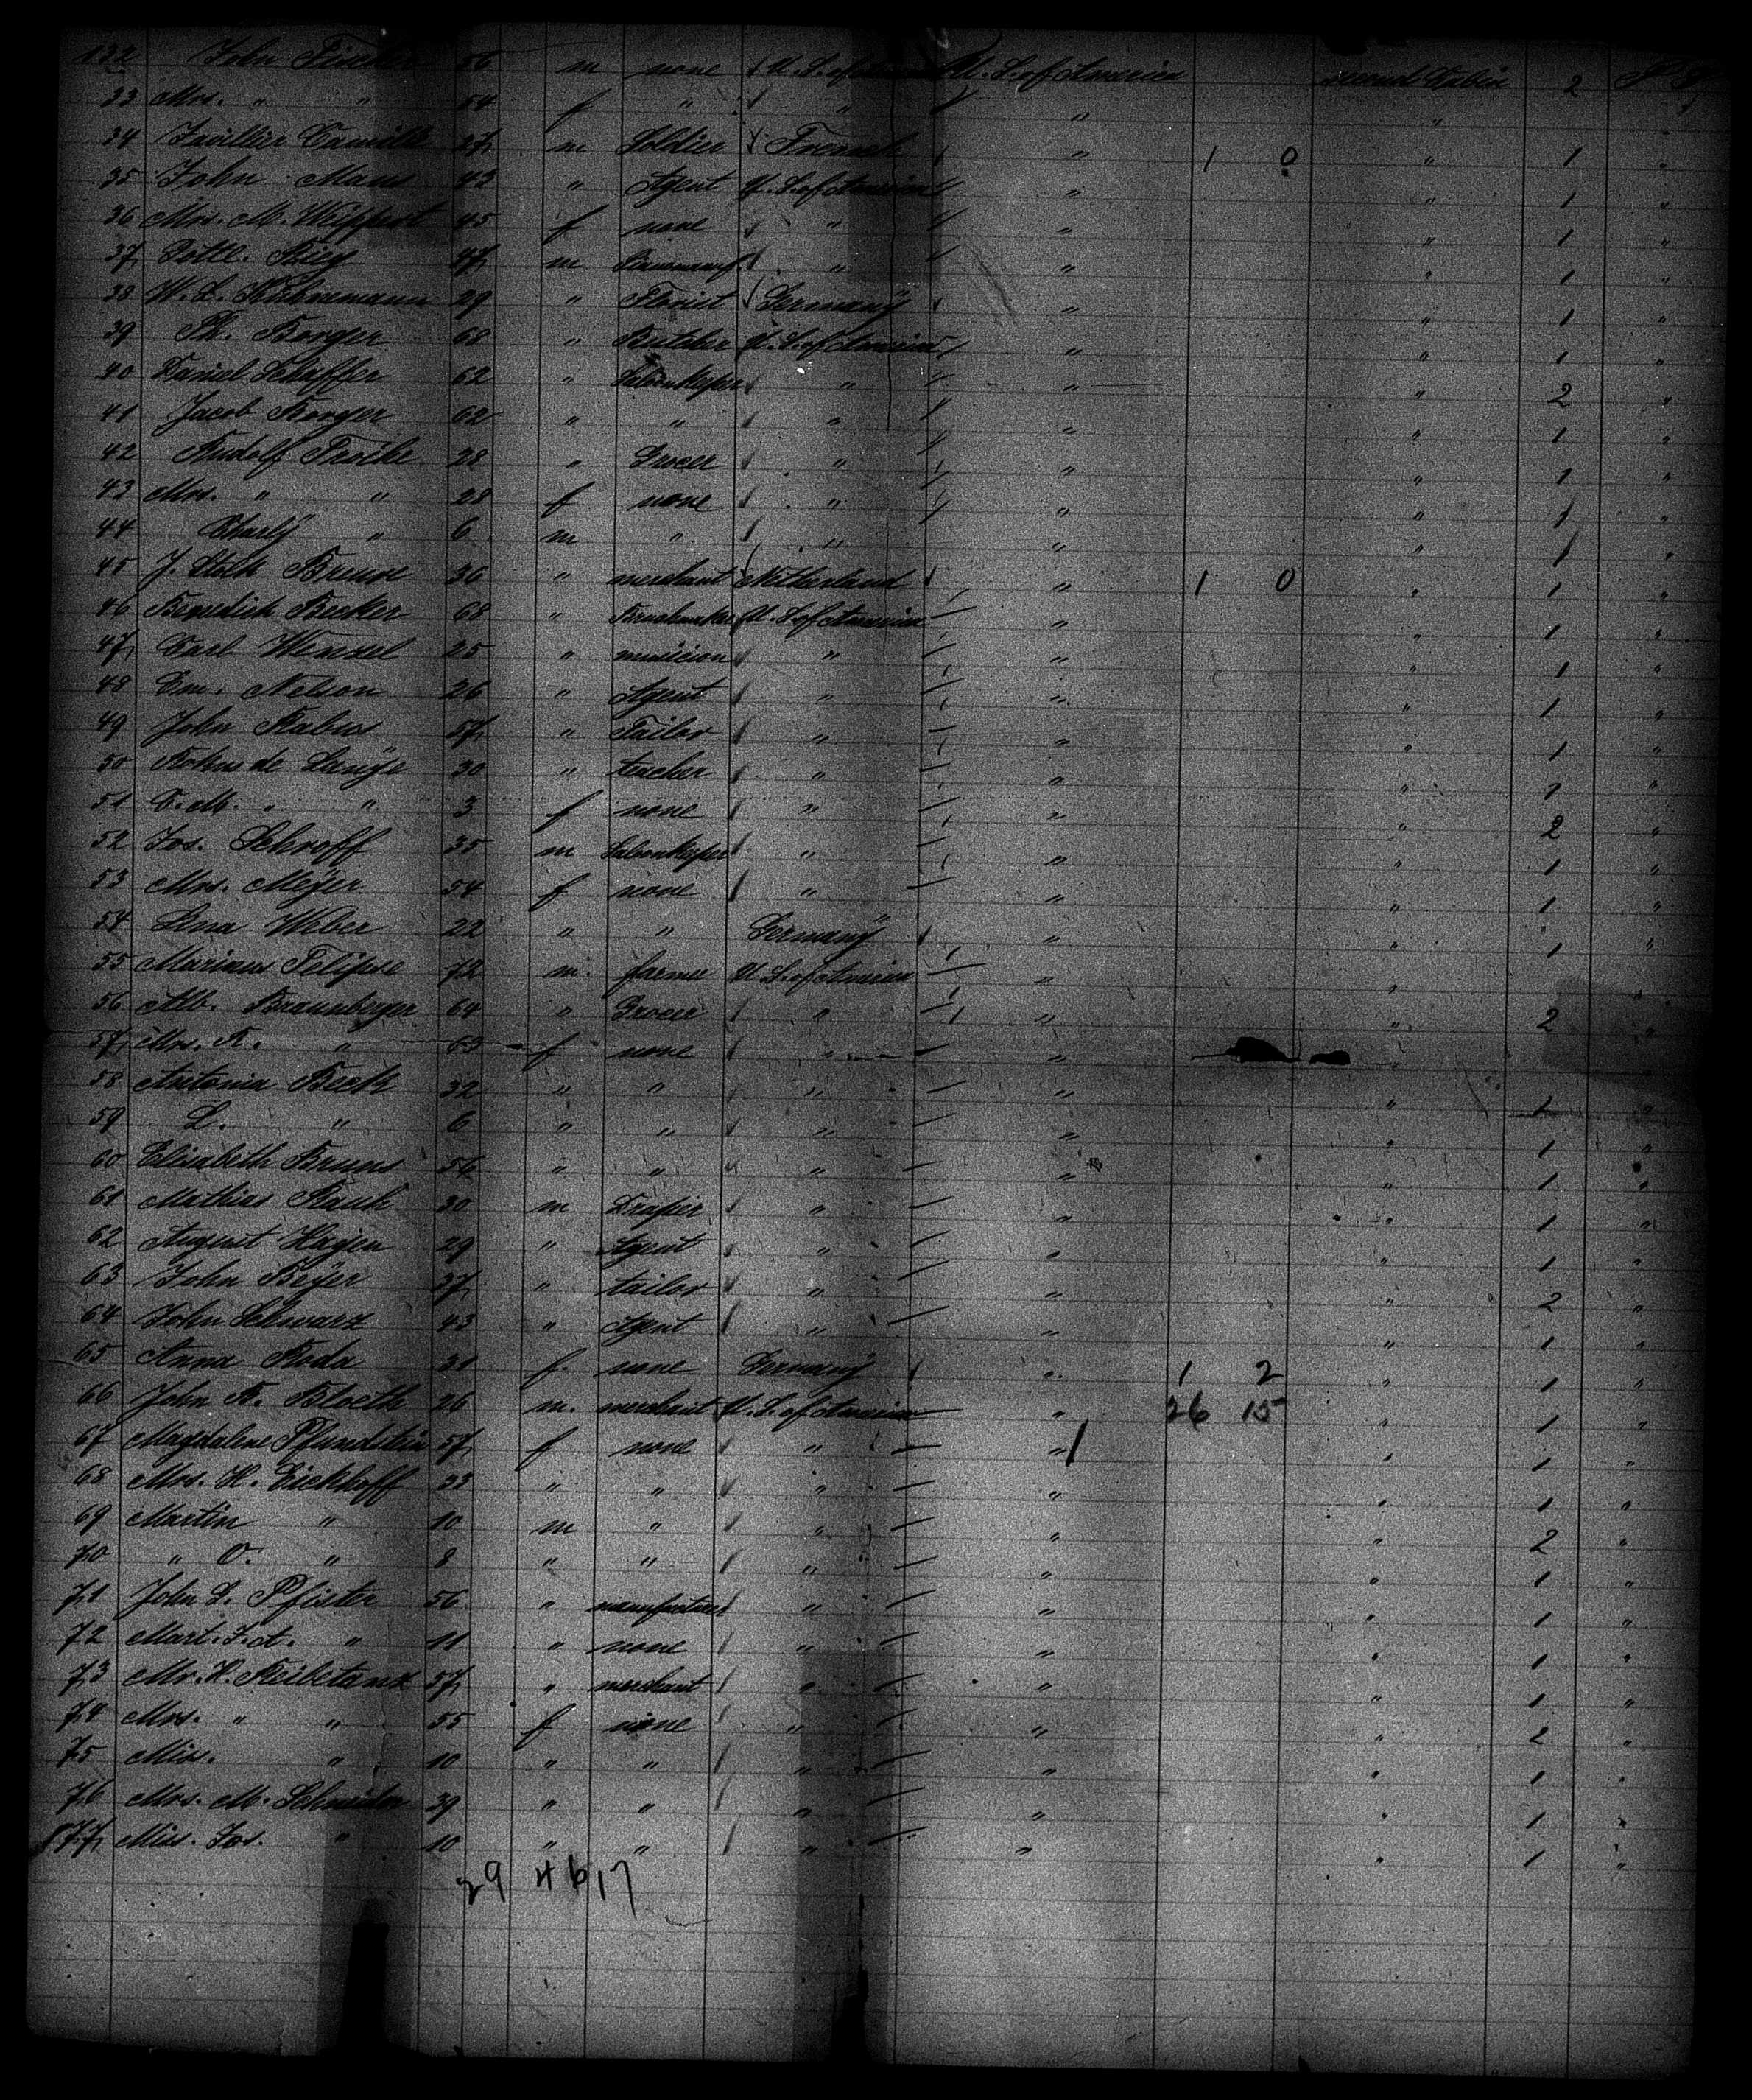 132 John Fischer 56 m none U. S. of America U. S. of America second Cabin 2
33 Mrs. " " 54 f " " " "
34 Camille 27 m Soldier French " 1 0 " 1 "
35 John Maus 42 " Agent U. S. of America " " 1 "
36 Mrs. M. Weippert 45 f none " " " 1 "
37 Gottl. 47 m " " " 1 "
38 W. L. Kühnemann 29 " Florist Germany " " 1 "
39 Ph. Borger 68 " Butcher U. S. of America " " 1 "
40 Daniel Schaffer 62 " Saloonkeper " " " 2 "
41 Jacob Borger 62 " " " " " 1 "
42 Rudolf 28 " Grocer " " " 1 "
43 Mrs. " " 28 f none " " " 1 "
44 Charly " 6 m " " " " 1 "
45 J. Bruse 36 " merchant Netherland " 1 0 " 1 "
46 Benedict Becker 68 " U. S. of America " " 1 "
47 Carl Wenzel 25 " musicion " " " 1 "
48 Em. Nelson 26 " Agent " " " 1 "
49 John 57 " Tailor " " " 1 "
50 de Lange 30 " teacher " " " 1 "
51 C. M. " " 3 f none " " " 2 "
52 Jos. Schroff 35 m Saloonkeper " " " 1 "
53 Mrs. Meyer 54 f none " " " 1 "
54 Lena Weber 22 " " Germany " " 1 "
55 Marinus Felipse 72 m. farmer U. S. of America " "
56 Alb. Braunberger 64 " Grocer " " " 2 "
57 Mrs. K. " 63 f none " "
58 Antonia Beck 32 " " " " " 1 "
59 L. " 6 " " " " " 1 "
60 Elisabeth Bruns 56 " " " " " 1 "
61 Mathias Rauh 30 m Draper " " " 1 "
62 August Hagen 29 " Agent " " " 1 "
63 John Beyer 37 " tailor " " " 2 "
64 John Schwarz 43 " Agent " " " 1 "
65 Anna Roda 31 f none Germany " 1 2 " 1 "
66 John K. Bloeth 26 m. merchant U. S. of America " 26 15 " 1 "
67 Magdalene Pfundstein 57 f none " " " 1 "
68 Mrs. H. Eickhoff 33 " " " " " 1 "
69 Martin " 10 m " " " " 2 "
70 " O. " 8 " " " " " 1 "
71 John L. Pfister 56 " manufacturer " " " 1 "
72 Mart. J. A. " 11 " none " " " 1 "
73 Mr. H. Keibetanz 57 " merchant " " " 1 "
74 Mrs. " " 55 f none " " " 2 "
75 Miss. " 10 " " " " " 1 "
76 Mrs. M. Schneider 39 " " " " " 1 "
177 Miss. Jos. " 10 " " " " " 1 "
29 4 6 17